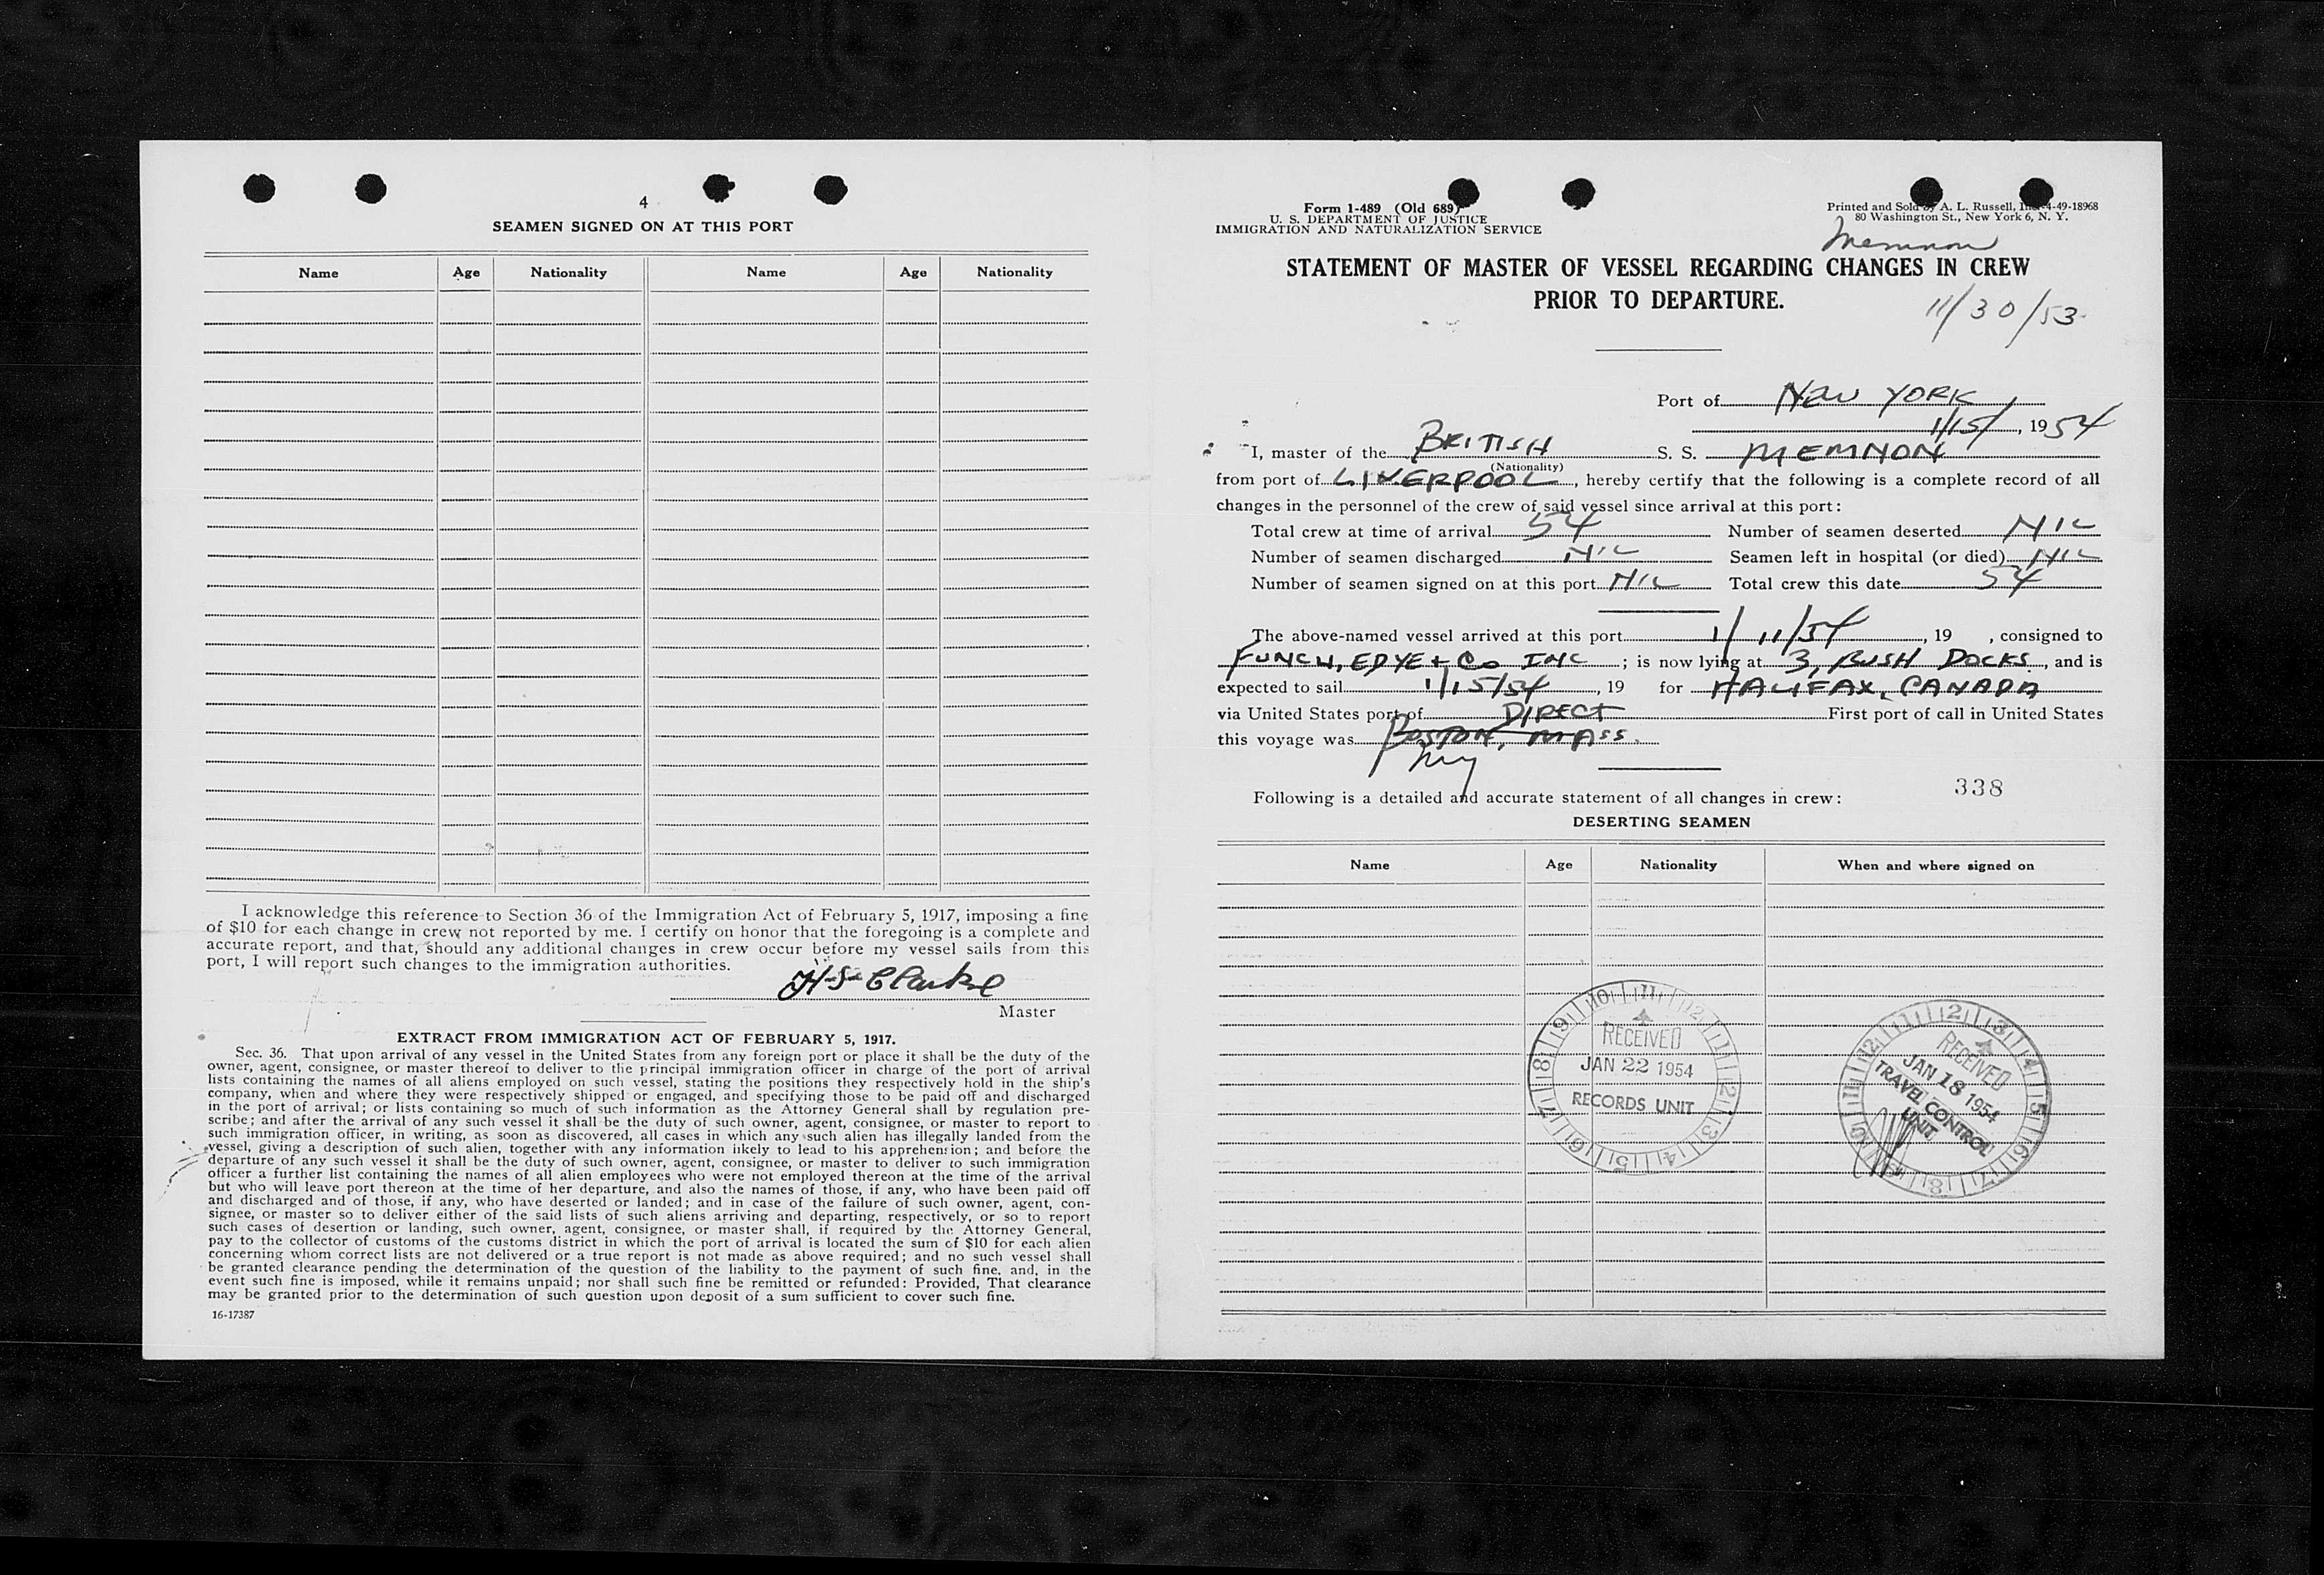 4
SEAMEN SIGNED ON AT THIS PORT
Name Age Nationality Name Age Nationality
I acknowledge this reference to Section 36 of the Immigration Act of February 5, 1917, imposing a fine
of $10 for each change in crew not reported by me. I certify on honor that the foregoing is a complete and
accurate report, and that, should any additional changes in crew occur before my vessel sails from this
port, I will report such changes to the immigration authorities.
H S Clarke
Master
EXTRACT FROM IMMIGRATION ACT OF FEBRUARY 5, 1917.
Sec. 36. That upon arrival of any vessel in the United States from any foreign port or place it shall be the duty of the
owner, agent, consignee, or master thereof to deliver to the principal immigration officer in charge of the port of arrival
lists containing the names of all aliens employed on such vessel, stating the positions they respectively hold in the ship's
company, when and where they were respectively shipped or engaged, and specifying those to be paid off and discharged
in the port of arrival; or lists containing so much of such information as the Attorney General shall by regulation pre-
scribe; and after the arrival of any such vessel it shall be the duty of such owner, agent, consignee, or master to report to
such immigration officer, in writing, as soon as discovered, all cases in which any such alien has illegally landed from the
vessel, giving a description of such alien, together with any information likely to lead to his apprehension; and before the
departure of any such vessel it shall be the duty of such owner, agent, consignee, or master to deliver to such immigration
officer a further list containing the names of all alien employees who were not employed thereon at the time of the arrival
but who will leave port thereon at the time of her departure, and also the names of those, if any, who have been paid off
and discharged and of those, if any, who have deserted or landed; and in case of the failure of such owner, agent, con-
signee, or master so to deliver either of the said lists of such aliens arriving and departing, respectively, or so to report
such cases of desertion or landing, such owner, agent, consignee, or master shall, if required by the Attorney General,
pay to the collector of customs of the customs district in which the port of arrival is located the sum of $10 for each alien
concerning whom correct lists are not delivered or a true report is not made as above required; and no such vessel shall
be granted clearance pending the determination of the question of the liability to the payment of such fine, and, in the
event such fine is imposed, while it remains unpaid; nor shall such fine be remitted or refunded: Provided, That clearance
may be granted prior to the determination of such question upon deposit of a sum sufficient to cover such fine.
16-17387
Form 1-489 (Old 689)
U. S. DEPARTMENT OF JUSTICE
IMMIGRATION AND NATURALIZATION SERVICE
Printed and Sold by A. L. Russell, Inc. 4-49-18968
80 Washington St., New York 6, N. Y.
Memnon
STATEMENT OF MASTER OF VESSEL REGARDING CHANGES IN CREW
PRIOR TO DEPARTURE.
11/30/53
Port of NEW YORK
1/15/, 1954
I, master of the BRITISH S. S. MEMNON
(Nationality)
from port of LIVERPOOL, hereby certify that the following is a complete record of all
changes in the personnel of the crew of said vessel since arrival at this port:
Total crew at time of arrival 54 Number of seamen deserted NIL
Number of seamen discharged NIL Seamen left in hospital (or died) NIL
Number of seamen signed on at this port NIL Total crew this date 54
The above-named vessel arrived at this port 1/11/54, 19 , consigned to
FUNCH, EDYE & Co INC ; is now lying at 3, BUSH DOCKS, and is
expected to sail 1/15/54, 19 for HALIFAX, CANADA
via United States port of DIRECT First port of call in United States
this voyage was BOSTON, MASS.
NY
338
Following is a detailed and accurate statement of all changes in crew:
DESERTING SEAMEN
Name Age Nationality When and where signed on
RECEIVED
JAN 22 1954
RECORDS UNIT
RECEIVED
JAN 18 1954
TRAVEL CONTROL
UNIT